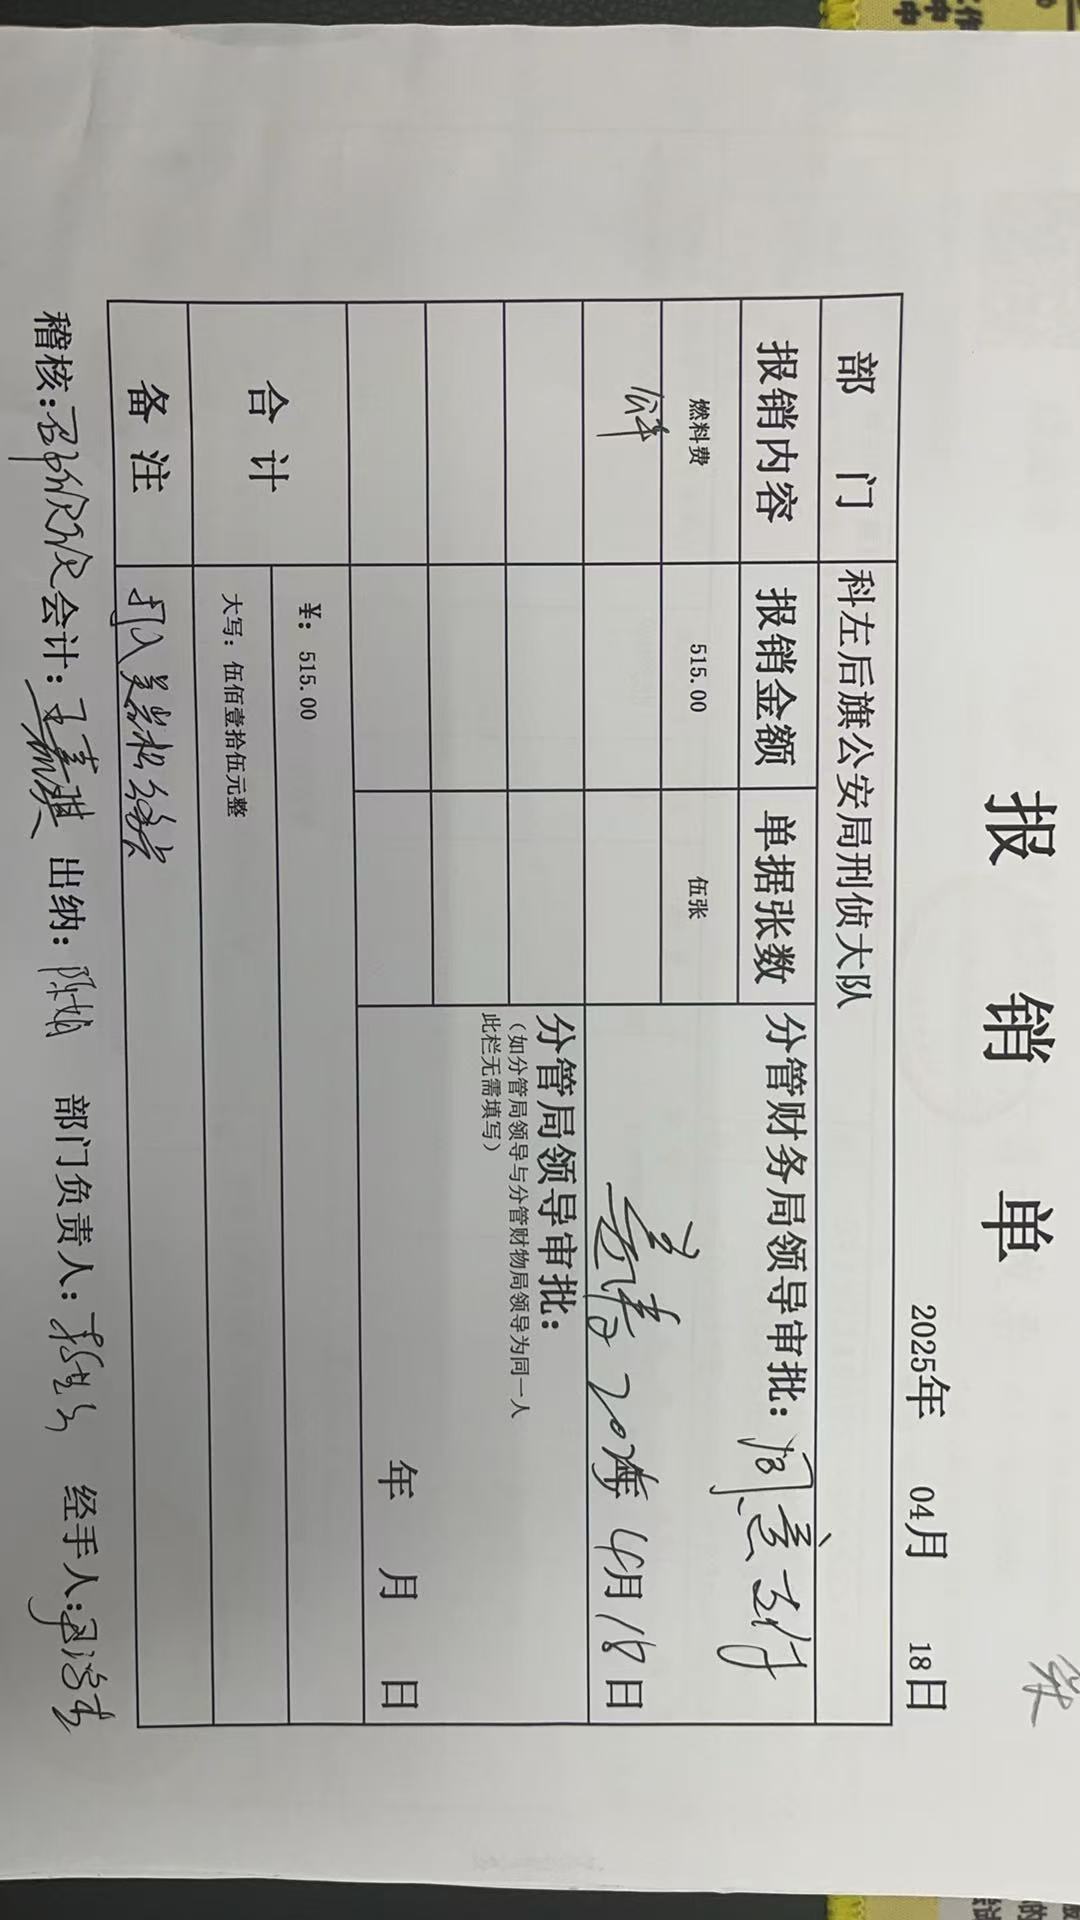 报 销 单
2025年 04月 18日
部 门 科左后旗公安局刑侦大队
报销内容 报销金额 单据张数 分管财务局领导审批：
燃料费 515.00 伍张
年4月18日
分管局领导审批：
（如分管局领导与分管财物局领导为同一人
此栏无需填写）
年 月 日
合 计 ¥：515.00
大写：伍佰壹拾伍元整
备 注
稽核： 会计：王嘉琪 出纳：陈娟 部门负责人： 经手人：